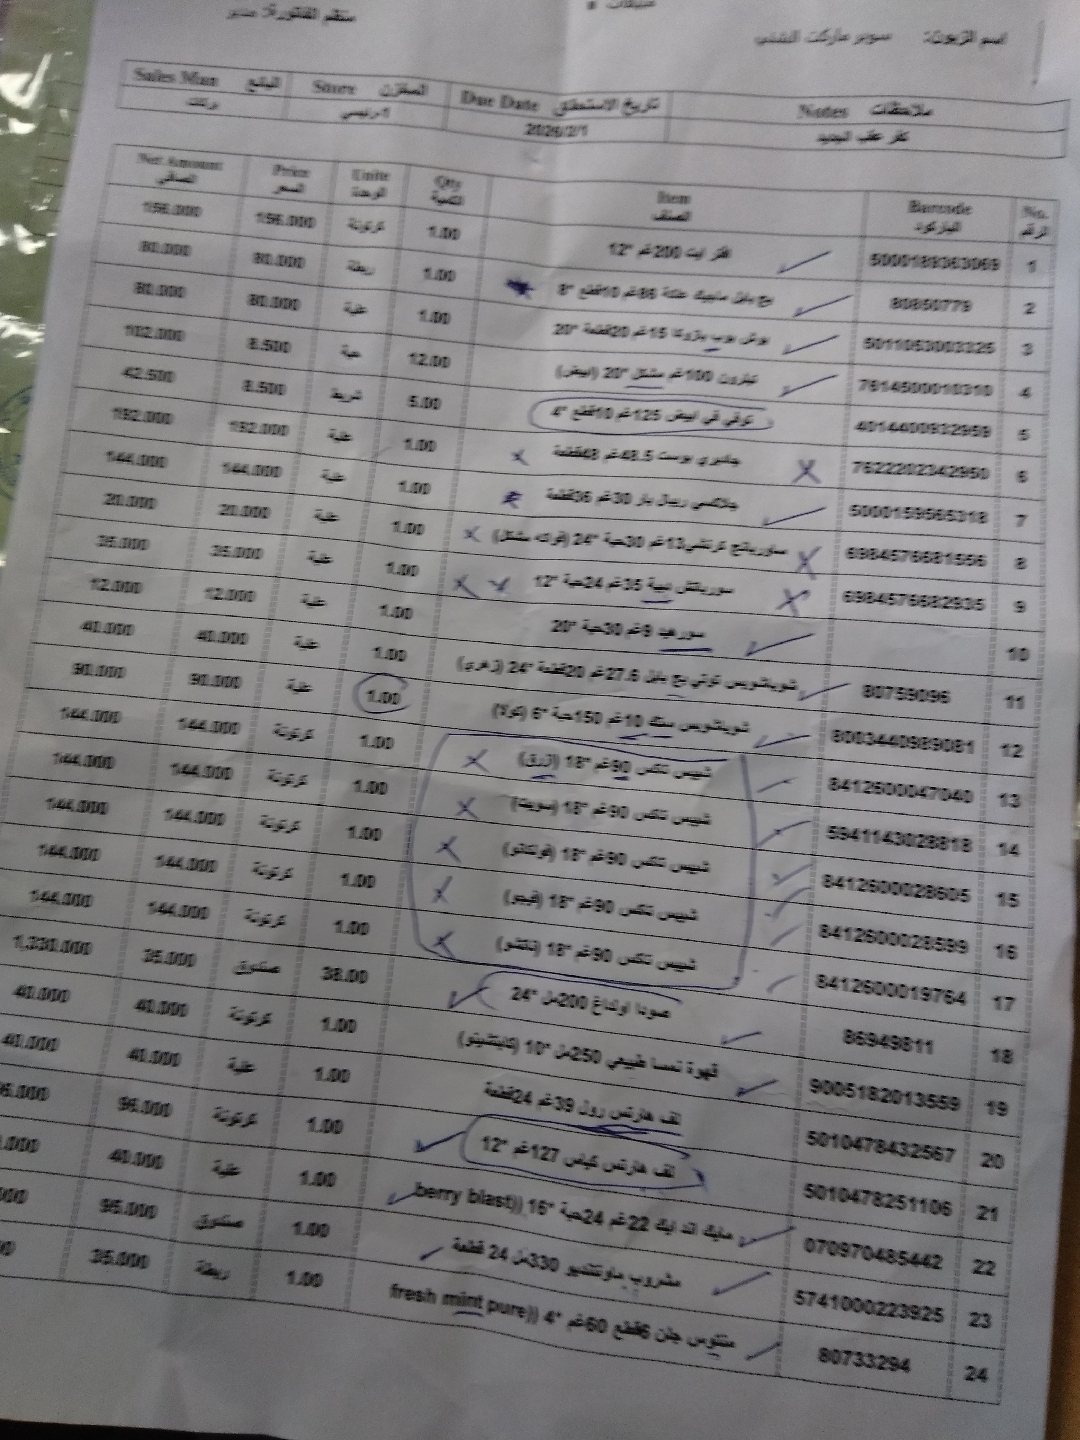 منظم الفاتورة: مدير
اسم الزبون: سوبر ماركت
ملاحظات Notes تاريخ الاستحقاق Due Date المخزن Store البائع Sales Man
2026/2/1 1-رئيسي بركات
No. Barcode Item Qty Unite Price Net Amount
الرقم الباركود الصنف الكمية الوحدة السعر الصافي
1 5000189363069 200غم *12 1.00 كرتونة 156.000 156.000
2 80850779 بج بابل ماجيك علكة 86غم 10قطع *8 1.00 ربطة 80.000 80.000
3 5011053003325 بوش بوب بازوكا 15غم 20قطعة *20 1.00 علبة 80.000 80.000
4 7614500010310 تبلرون 100غم مشكل *20 (ابيض) 12.00 حبة 8.500 102.000
5 4014400932959 توفي في ابيض 125غم 10قطع *4 5.00 شريط 8.500 42.500
6 7622202342950 بوست 48.5غم 48قطعة 1.00 علبة 192.000 192.000
7 5000159565318 جلاكسي ريبال بار 30غم 36قطعة 1.00 علبة 144.000 144.000
8 6984576681556 ساوربانج كرنشي13غم 30حبة *24 (فواكه مشكل) 1.00 علبة 20.000 20.000
9 6984576682935 35غم 24حبة *12 1.00 علبة 35.000 35.000
10 سورهيد 9غم 30حبة *20 1.00 علبة 12.000 12.000
11 80759096 شوباشوبس توتي بج بابل 27.6غم 20قطعة *24 (زهري) 1.00 علبة 40.000 40.000
12 8003440989081 شوباشوبس ستك 10غم 150حبة *6 (كولا) 1.00 علبة 90.000 90.000
13 8412600047040 شيبس تكس 90غم *18 (ازرق) 1.00 كرتونة 144.000 144.000
14 5941143028818 شيبس تكس 90غم *18 (سويت) 1.00 كرتونة 144.000 144.000
15 8412600028605 شيبس تكس 90غم *18 1.00 كرتونة 144.000 144.000
16 8412600028599 شيبس تكس 90غم *18 1.00 كرتونة 144.000 144.000
17 8412600019764 شيبس تكس 90غم *18 1.00 كرتونة 144.000 144.000
18 86949811 صودا اولداغ 200مل *24 38.00 صندوق 35.000 1,330.000
19 9005182013559 قهوة نمسا طبيعي 250مل *10 (كابتشينو) 1.00 كرتونة 40.000 40.000
20 5010478432567 لف هارتس رول 39غم 24قطعة 1.00 علبة 40.000 40.000
21 5010478251106 لف هارتس كيس 127غم *12 1.00 كرتونة 96.000
22 070970485442 مايك اند ايك 22غم 24حبة *16 ((berry blast 1.00 علبة 40.000
23 5741000223925 مشروب ماونتنديو 330مل 24 قطعة 1.00 صندوق 95.000
24 80733294 منتوس جلن 6قطع 60غم *4 ((fresh mint pure 1.00 ربطة 35.000